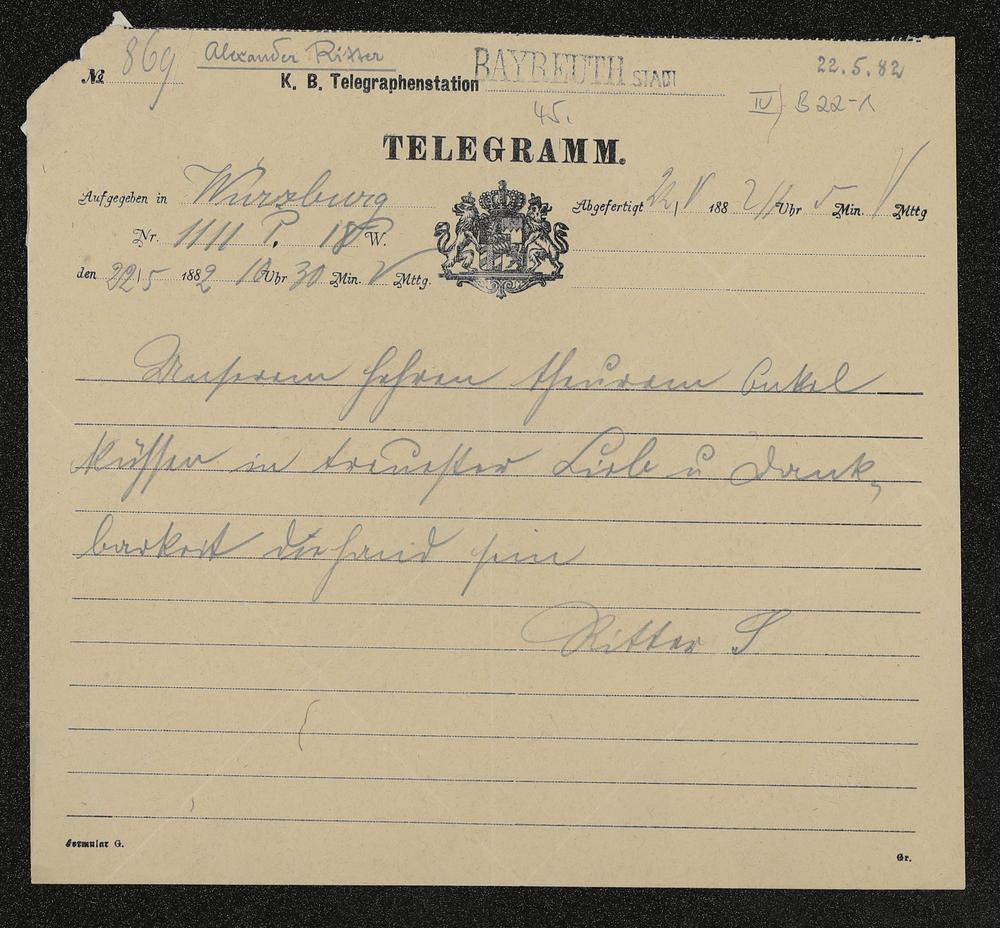 № 869 Alexander Ritter 22.5.82
K. B. Telegraphenstation BAYREUTH STADT
IV) B 22-1
45.
TELEGRAMM.
Aufgegeben in Würzburg
Abgefertigt 22/V 188 2 11 Uhr 5 Min. V Mttg
Nr. 1111 P. 18 W.
den 22/5 1882 10 Uhr 30 Min. V Mttg.
Unserem hehren theurem Onkel
küssen in treuester Lieb u Dank-
barkeit die hand sein
Ritter S
Formular G.
Gr.